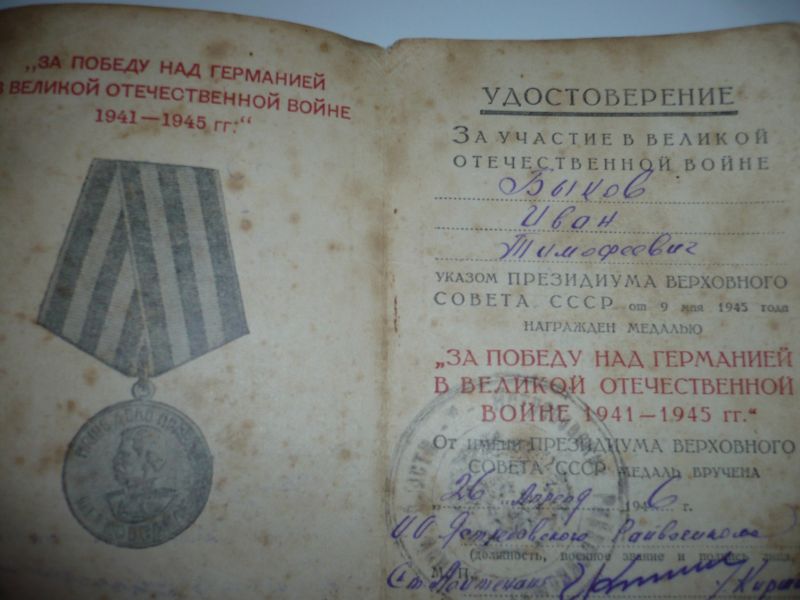 „ЗА ПОБЕДУ НАД ГЕРМАНИЕЙ
В ВЕЛИКОЙ ОТЕЧЕСТВЕННОЙ ВОЙНЕ
1941—1945 гг."
УДОСТОВЕРЕНИЕ
ЗА УЧАСТИЕ В ВЕЛИКОЙ
ОТЕЧЕСТВЕННОЙ ВОЙНЕ
Быков
Иван
Тимофеевич
УКАЗОМ ПРЕЗИДИУМА ВЕРХОВНОГО
СОВЕТА СССР от 9 мая 1945 года
НАГРАЖДЕН МЕДАЛЬЮ
„ЗА ПОБЕДУ НАД ГЕРМАНИЕЙ
В ВЕЛИКОЙ ОТЕЧЕСТВЕННОЙ
ВОЙНЕ 1941—1945 гг."
ОТ ИМЕНИ ПРЕЗИДИУМА ВЕРХОВНОГО
СОВЕТА СССР МЕДАЛЬ ВРУЧЕНА
„26" 1946 г.
(должность, военное звание и подпись лица,
М. П.
Ст Лейтенант
НАШЕ ДЕЛО ПРАВОЕ